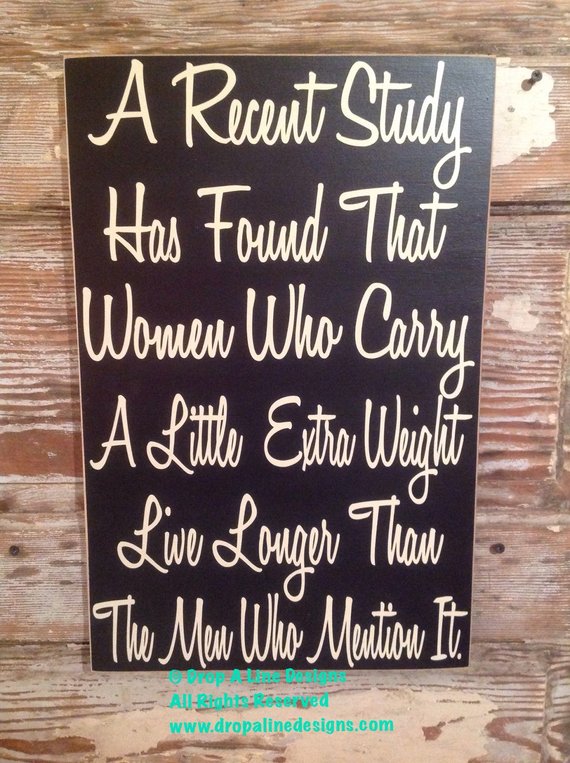 A Recent Study
Has Found That
Women Who Carry
A Little Extra Weight
Live Longer Than
The Men Who Mention It.
© Drop A Line Designs
All Rights Reserved
www.dropalinedesigns.com